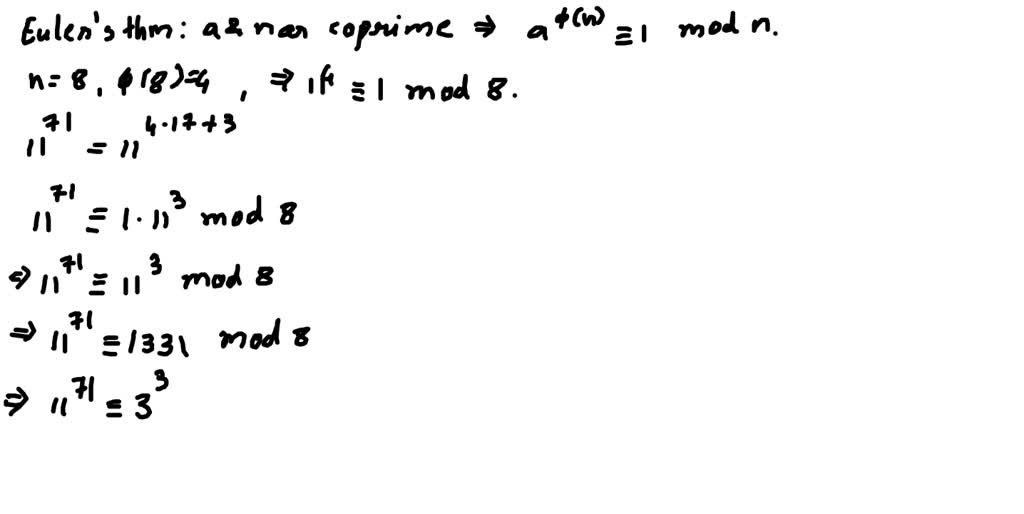 Euler's thm: a & n are coprime ⇒ a^φ(n) ≡ 1 mod n.
n = 8, φ(8)=4, ⇒ 11^4 ≡ 1 mod 8.
11^71 = 11^4·17+3
11^71 ≡ 1·11^3 mod 8
⇒ 11^71 ≡ 11^3 mod 8
⇒ 11^71 ≡ 1331 mod 8
⇒ 11^71 ≡ 3^3